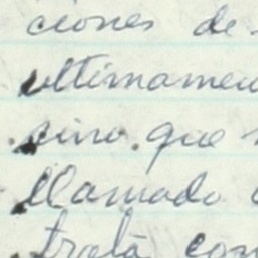 ciones de
ultimamen
sino que
llamado
trata con